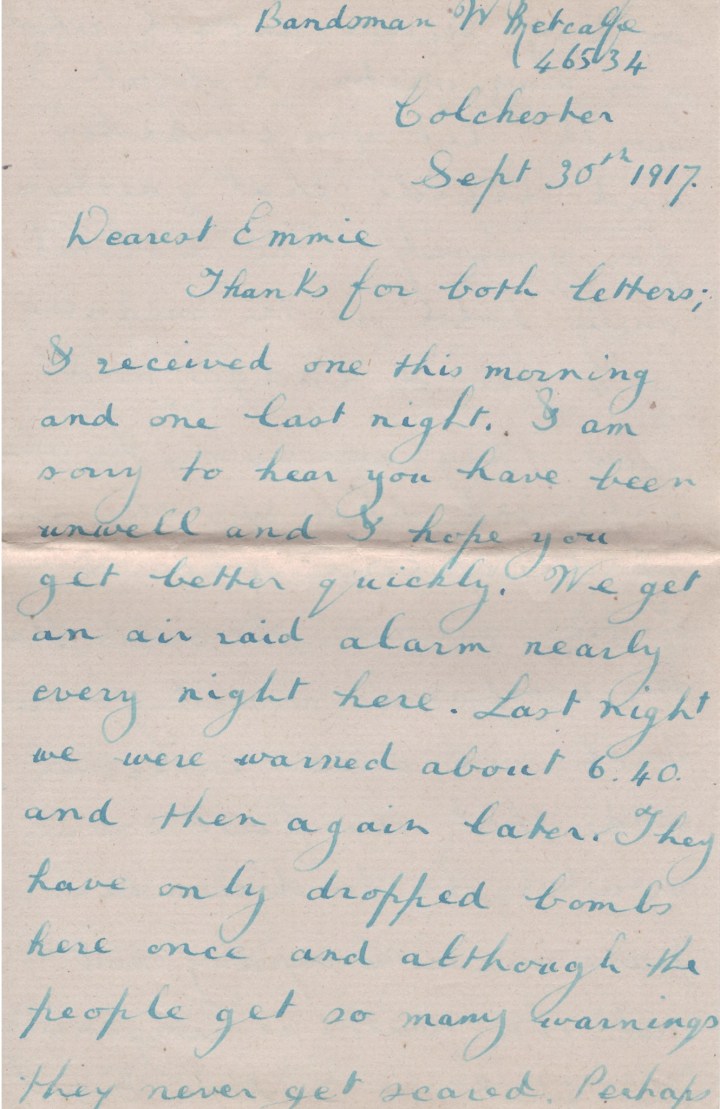 Bandsman W Metcalfe
46534
Colchester
Sept 30th 1917.
Dearest Emmie
Thanks for both letters;
I received one this morning
and one last night. I am
sorry to hear you have been
unwell and I hope you
get better quickly. We get
an air raid alarm nearly
every night here. Last night
we were warned about 6.40.
and then again later. They
have only dropped bombs
here once and although the
people get so many warnings
they never get scared. Perhaps